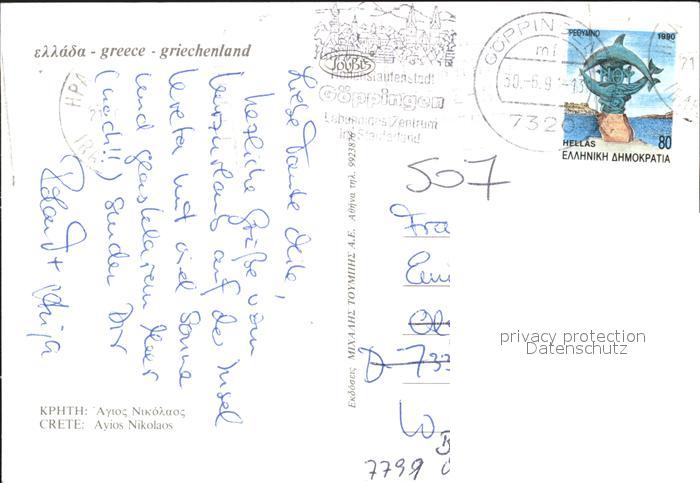 ελλάδα - greece - griechenland
Liebe Tante
herzliche Grüße vom
Kurzurlaub auf der Insel
Kreta mit viel Sonne
und glasklarem Meer
(noch!!) senden Dir
Roland +
ΚΡΗΤΗ: Ἅγιος Νικόλαος
CRETE: Ayios Nikolaos
Εκδόσεις ΜΙΧΑΛΗΣ ΤΟΥΜΠΗΣ Α.Ε. Αθήνα τηλ. 992387
TOUBIS
Hohenstaufenstadt
Göppingen
Lebendiges Zentrum
im Stauferland
GÖPPIN
ml
30.-6.9 -13
7320
ΡΕΘΥΜΝΟ 1990
HELLAS 80
ΕΛΛΗΝΙΚΗ ΔΗΜΟΚΡΑΤΙΑ
507
Fra
Emi
D-733
Lo
7799
privacy protection
Datenschutz